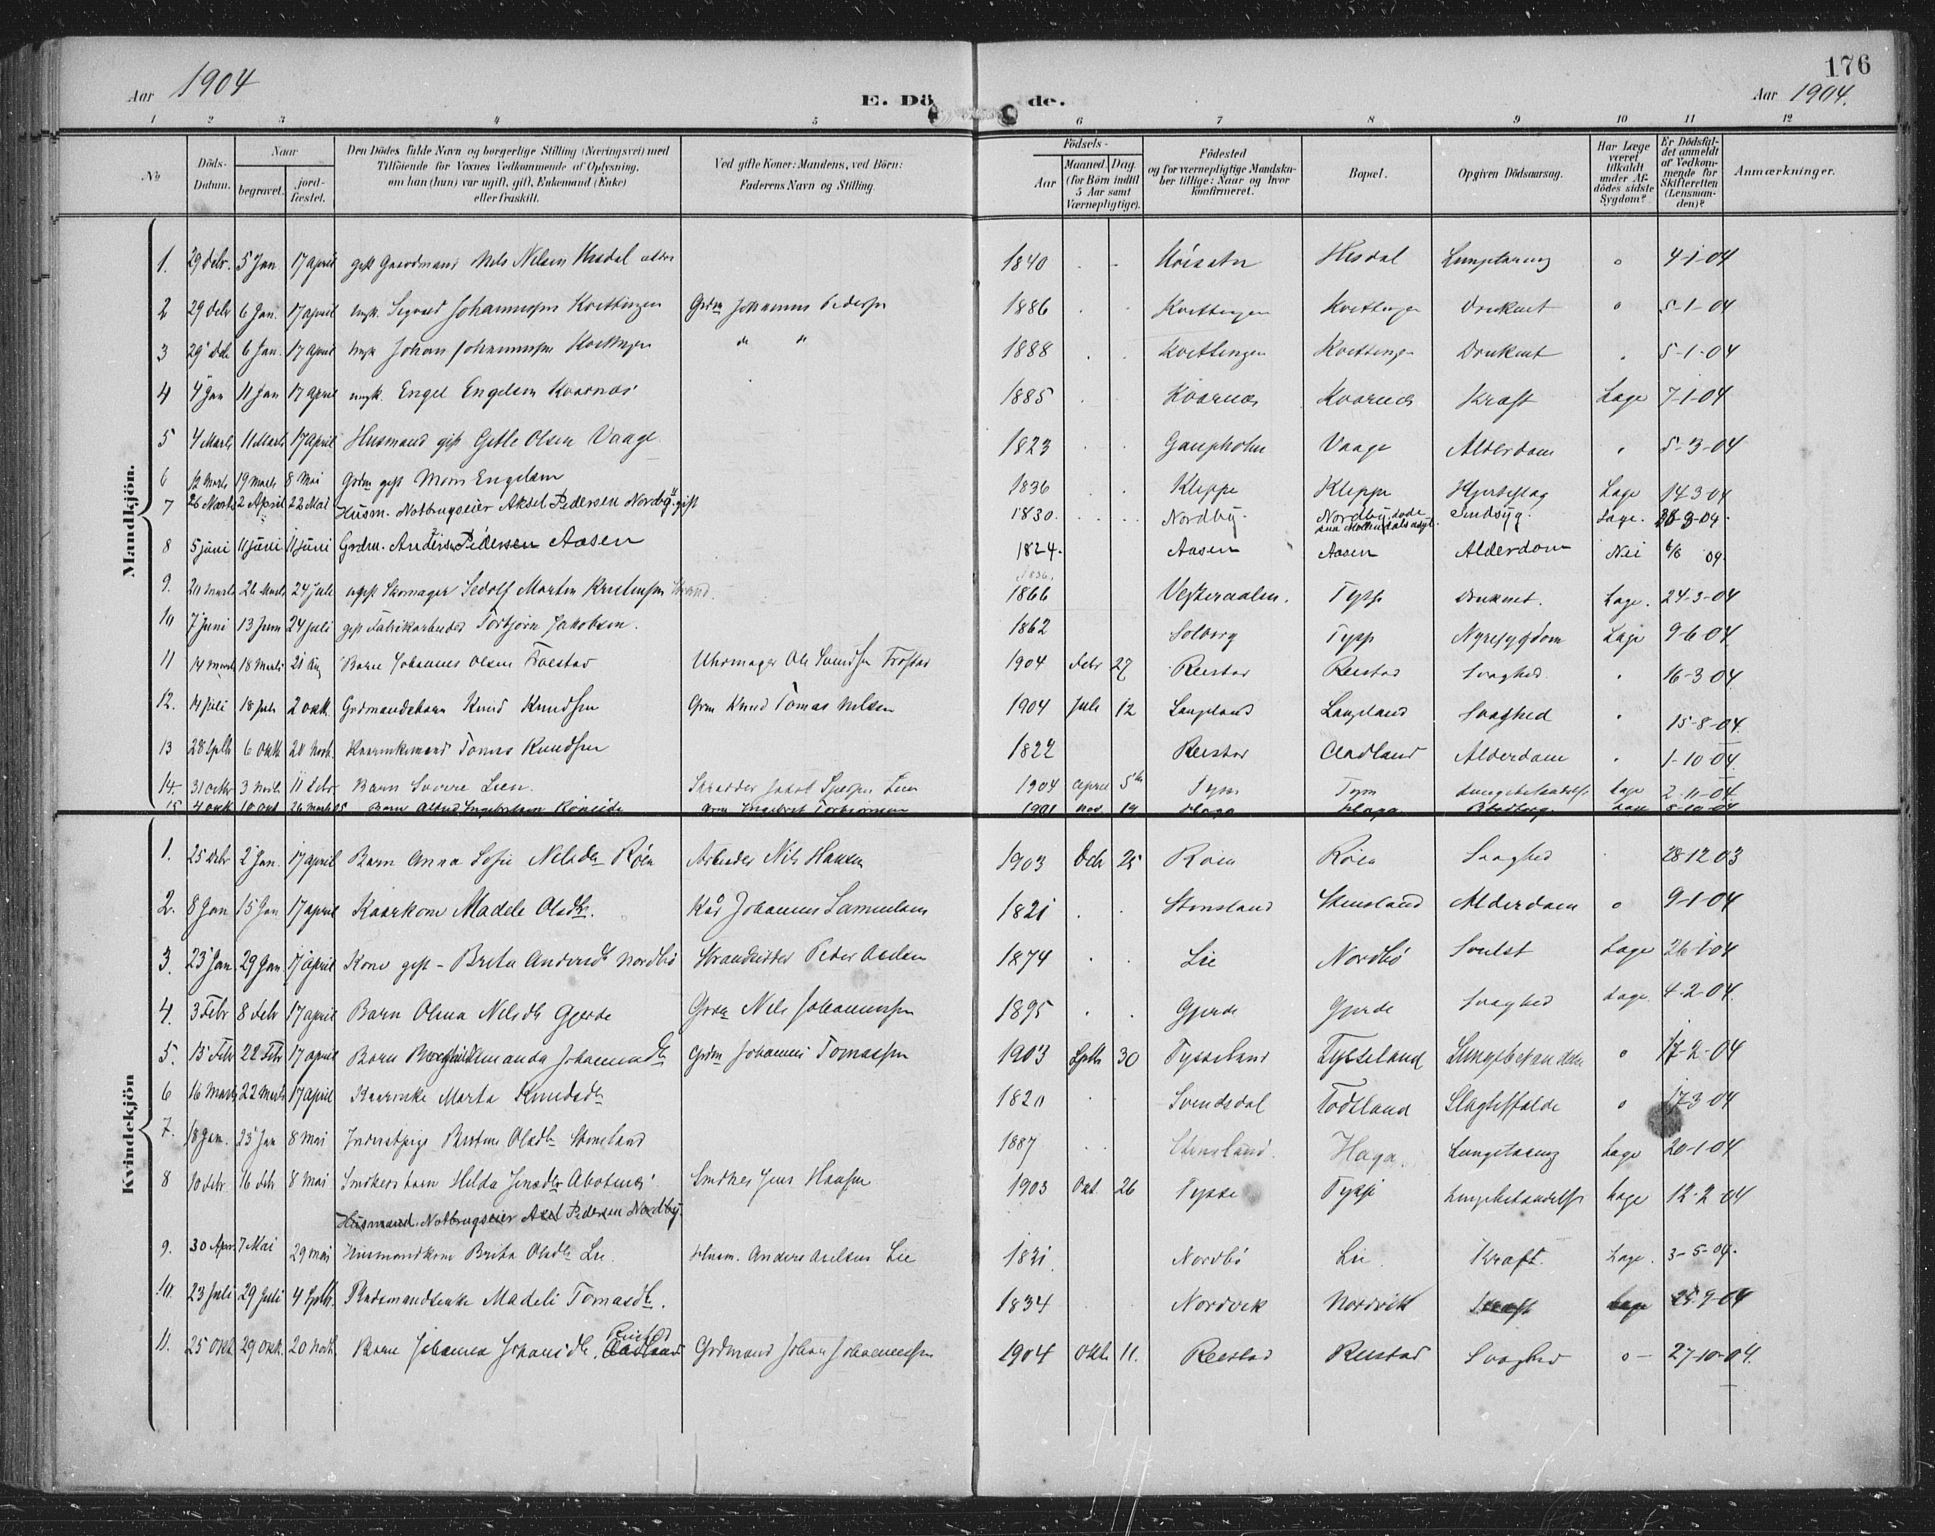 176
Aar 1904
E. Dö de.
Aar 1904.
1 2 3 4 5 6 7 8 9 10 11 12
No
Döds-Datum.
Naar
begravet.
jord-fæstet.
Den Dödes fulde Navn og borgerlige Stilling (Næringsvei) med Tilföiende for Voxnes Vedkommende af Oplysning, om han (hun) var ugift, gift, Enkemand (Enke) eller fraskilt.
Ved gifte Koner: Mandens, ved Börn: Faderens Navn og Stilling.
Födsels-
Aar
Maaned. Dag. (for Börn indtil 5 Aar samt Værnepligtige).
Födested og for værnepligtige Mandskaber tillige: Naar og hvor konfirmeret.
Bopæl.
Opgiven Dödsaarsag.
Har Læge været tilkaldt under Afdödes sidste Sygdom?
Er Dödsfaldet anmeldt af Vedkommende for Skifteretten (Lensmanden)?
Anmærkninger.
Mandkjön.
1. 29 Debr. 5 Jan 17 april gift Gaardmand Nels Nelsen Hisdal 1840 Hisdal 4-1-04
2 29 Debr 6 Jan. 17 april ungk. Sigvald Johannessen Kvittingen Grdm Johannes Pedersen 1886 Kvittingen Kvittingen Druknet o 5-1-04
3 29 Deb 6 Jan. 17 april ungk Johan Johannessen Kvittingen " " 1888 Kvittingen Kvittingen Druknet 5-1-04
4 4 Jan 11 Jan 17 april ungk. Engel Engelsen Kvarnæs 1885 Kvarnæs Kvarnæs Kræft Læge 7-1-04
5 4 Marts 11 Marts 17 april Husmand gift Gitle Olsen Vaage 1823 Vaage Alderdom 5-3-04
6 12 Marts 19 marts 8 Mai Grdm gift Mons Engelsen 1836 Kleppe Kleppe Hjerteslag Læge 14-3-04
7 26 Marts 2 April 22 Mai Husm. Notbrugseier Aksel Pedersen Nordby - gift 1830 Nordby Nordby, døde Sindsyg. Læge. 28-3-04
8 5 juni 11 juni 11 juni Grdm. Anders Pedersen Aasen 1824. Aasen Aasen Alderdom Nei 6/6 04.
9. 20 marts 26 Marts 24 juli Skomager Sedolf Martin Kristensen Strand. 1866 Vesteraalen. Tysse Druknet. Læge. 24-3-04
10 7 Juni 13 Juni 24 juli gift Fabrikarbeider Torbjørn Jakobsen. 1862 Solberg Tysse Nyresygdom Læge 9-6-04
11 14 marts 18 Marts 21 Aug Barn Johannes Olsen Frøstad Uhrmager Ole Svendsen Frøstad 1904 Febr 27 Reistad Reistad Svaghed. 16-3-04
12. 14 juli 18 juli 2 okt. Grdmandsbarn Knud Knudsen Grm Knud Tomas Nelsen 1904 Juli 12 Langeland Langeland Svaghed 15-8-04.
13 28 Septb 6 Okt 20 Novb. Kaarenkemand Tomas Knudsen 1822 Reistad Aadland Alderdom 1-10-04
14 31 oktbr 3 Novb. 11 debr. Barn Sverre Lien. Skredder Jakob Lien 1904 april 5te Tysse Tysse Lungebetændelse Læge 2-11-04
15 4 okt 10 Okt 26 Marts 05 Barn Alfred Engebretsen Røiseide Grm Engebret Torbjørnsen 1901 Nov. 19 Haga Haga Læge 8-10-04
Kvindekjön
1. 25 Debr 2 Jan. 17 april Barn Anna Sofie Nilsdtr Røen Arbeider Nils Hansen 1903 Debr 25 Røen Røen Svaghed 28-12 03
2. 8 Jan 15 Jan 17 april Kaarkone Madele Olsdtr. Kår Johannes Samuelsen 1821 Stensland Stensland Alderdom o 9-1-04
3. 23 Jan. 29 Jan. 17 april Kone gift - Brita Andersdtr Nordbø Strandsidder Peder Axelsen 1874 Lie Nordbø Svulst Læge 26-1-04
4. 3 Febr 8 Febr 17 april Barn Olina Nilsdtr Gjerde Grdm Nils Johannessen 1895 Gjerde Gjerde Svaghed Læge. 4-2-04.
5. 15 Febr 22 Febr 17 april Barn Borghild Amanda Johannesdtr Grdm Johannes Tomassen 1903 Septb 30 Tysseland Tysseland Lungebetændelse o 17-2-04
6 16 Marts 22 Marts 17 april Kaarenke Marta Knudsdtr 1820 Svendsdal Todtland Slagtilfælde o 17-3-04
7. 18 Jan. 25 Jan 8 Mai Inderstpige Olsdtr Stensland 1887 Stensland. Haga. Lungetæring Læge 20-1-04
8 10 Febr. 16 Febr 8 Mai Snedkersbarn Hilda Jensdtr Abotnes Snedker Jens Hansen 1903 Okt 26 Tysse Tysse Lungebetændelse Læge 12-2-04
Husmand Notbrugseier Axel Pedersen Nordby.
9. 30 Apr. 7 Mai 29 mai Husmandkone Brita Olsdtr Lie. Husm. Anders Axelsen Lie 1831. Nordbø Lie. Kræft. Læge. 3-5-04.
10. 23 Juli 29 juli 4 Septbr. Madeli Tomasdtr. 1834 Nordvik Nordvik Kræft Læge 25-9-04
11. 25 Okt 29 Okt. 20 Novb. Barn Johanna Johansdtr. Aadland Reistad Grdmand Johan Johannessen 1904 Oktb 11. Reistad Reistad Svaghed o 27-10-04.